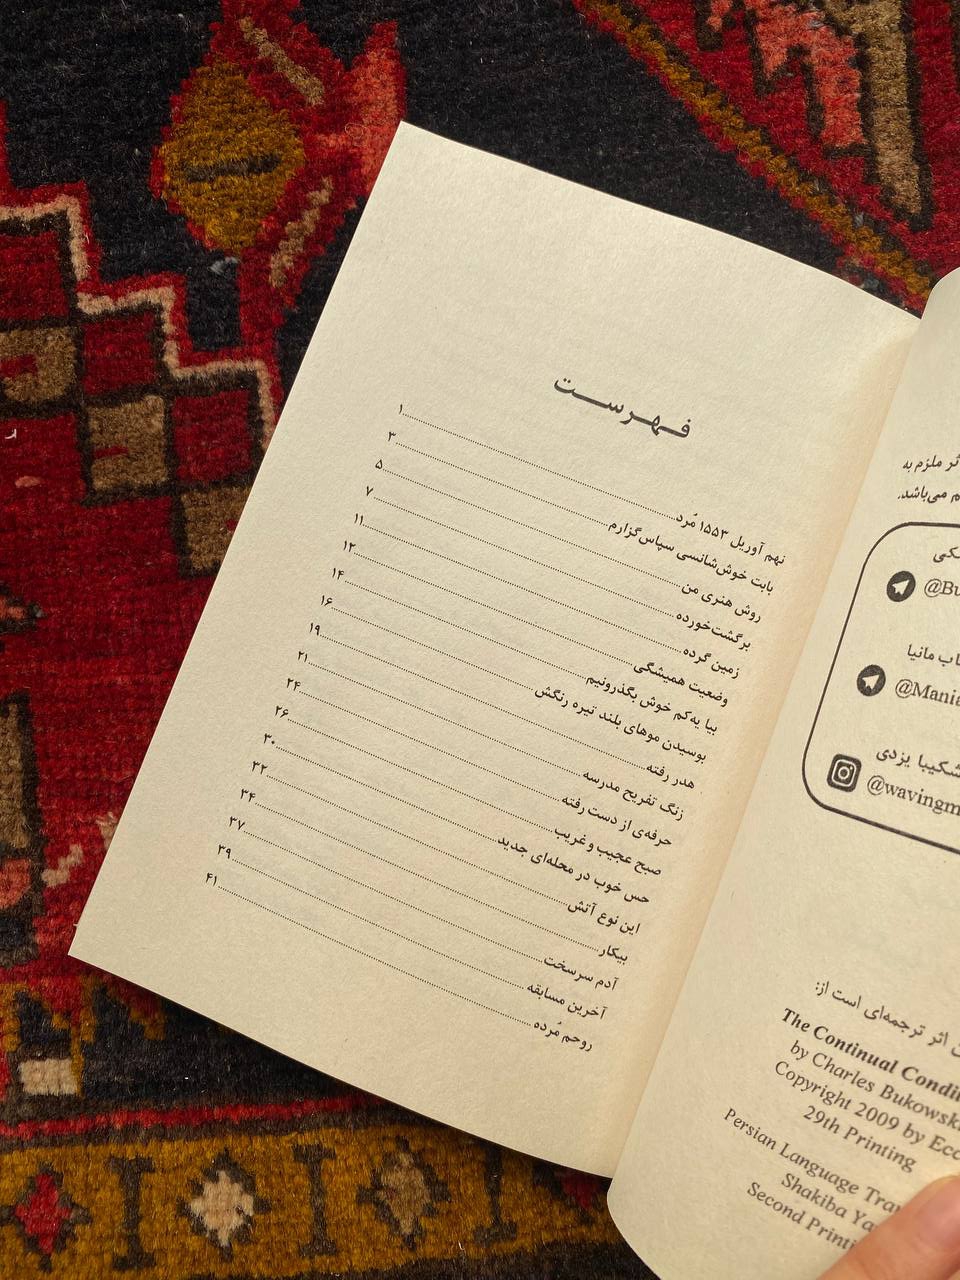 فهرست
نهم آوریل ۱۵۵۳ مُرد ۱
بابت خوش‌شانسی سپاس‌گزارم ۳
روش هنری من ۵
برگشت‌خورده ۷
زمین گرده ۱۱
وضعیت همیشگی ۱۲
بیا یه‌کم خوش بگذرونیم ۱۴
بوسیدن موهای بلند تیره رنگش ۱۶
هدر رفته ۱۹
زنگ تفریح مدرسه ۲۱
حرفه‌ی از دست رفته ۲۴
صبح عجیب و غریب ۲۶
حس خوب در محله‌ای جدید ۳۰
این نوع آتش ۳۲
بیکار ۳۴
آدم سرسخت ۳۷
آخرین مسابقه ۳۹
روحم مُرده ۴۱
ثر ملزم به
م می‌باشد.
@Bu
اب مانیا
@Mania
شکیبا یزدی
@wavingm
اثر ترجمه‌ای است از:
The Continual Condi
by Charles Bukowski
Copyright 2009 by Ecc
29th Printing
Persian Language Tra
Shakiba Ya
Second Printi